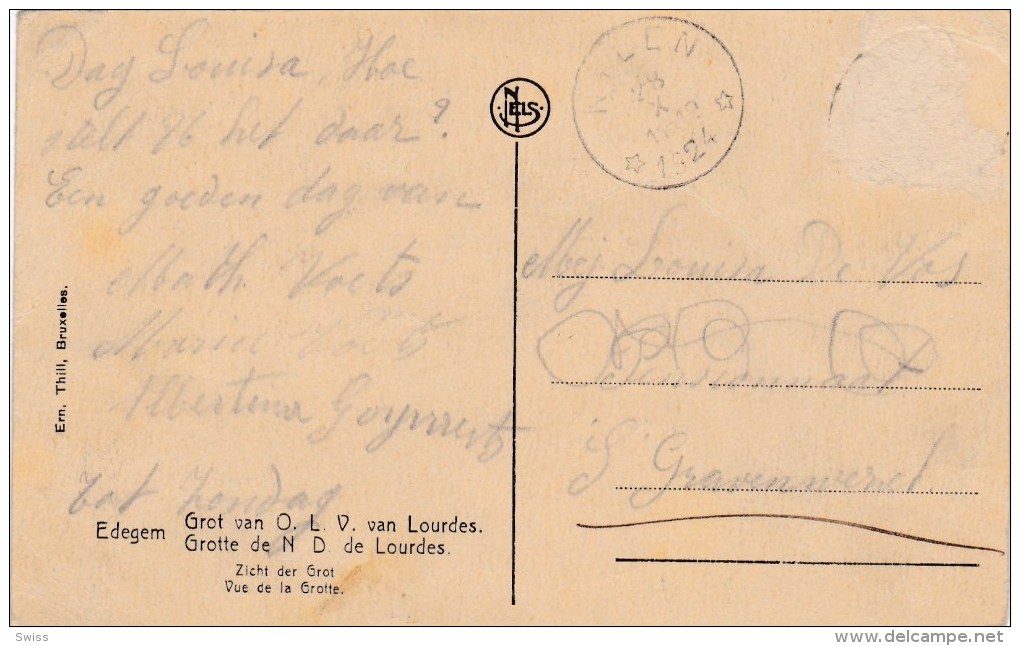 Dag Louisa, Hoe
stelt het daar?
Een goeden dag van
Math. Voets
Maria Voets
Albertina Goyvaerts
tot zondag
Edegem
Grot van O. L. V. van Lourdes.
Grotte de N D. de Lourdes.
Zicht der Grot
Vue de la Grotte.
Ern. Thill, Bruxelles.
NELS
NYLEN
X
1924
Mej Louisa De Vos
Pensionnaat
S' Gravenwezel.
Swiss
www.delcampe.net